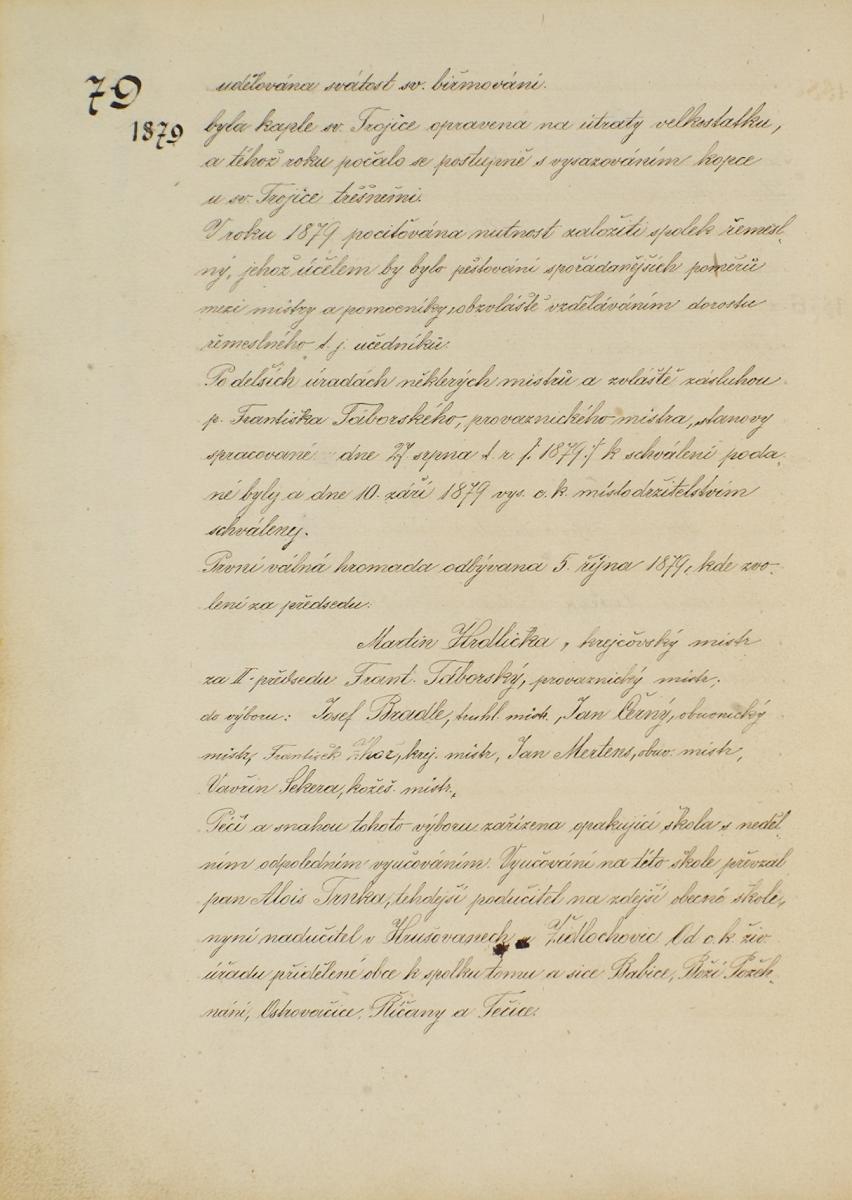 79
udělována svátost sv. biřmování.
1879
byla kaple sv. Trojice opravena na útraty velkostatku,
a téhož roku počalo se postupně s vysazováním kopce
u sv. Trojice třešněmi.
V roku 1879 pociťována nutnost založiti spolek řemesl-
ný, jehož účelem by bylo pěstování spořádanějších poměrů
mezi mistry a pomocníky, obzvláště vzděláváním dorostu
řemeslného t. j. učedníků.
Po delších úradách některých mistrů a zvláště zásluhou
p. Františka Táborského, provaznického mistra, stanovy
spracované dne 27 srpna t. r. /: 1879 :/ k schválení poda-
né byly a dne 10. září 1879 vys. c. k. místodržitelstvím
schváleny.
První valná hromada odbývana 5. října 1879, kde zvo-
lení za předsedu:
Martin Hrdlička, krejčovský mistr
za II. předsedu Frant. Táborský, provaznický mistr,
do výboru: Josef Bradle, truhl. mistr, Jan Černý, obuvnický
mistr, František, krej. mistr, Jan Mertens, obuv. mistr,
Vavřin Sekera, kožeš. mistr.
Péčí a snahou tohoto výboru zařízena opakující škola s neděl-
ním odpoledním vyučováním. Vyučování na této škole převzal
pan Alois Trnka, tehdejší podučitel na zdejší obecné škole,
nyní nadučitel v Hrušovanech u Židlochovic. Od c. k. živ.
úřadu přidělené obce k spolku tomu a sice Babice, Boží Požeh-
nání, Ostrovačice, Říčany a Tečice.